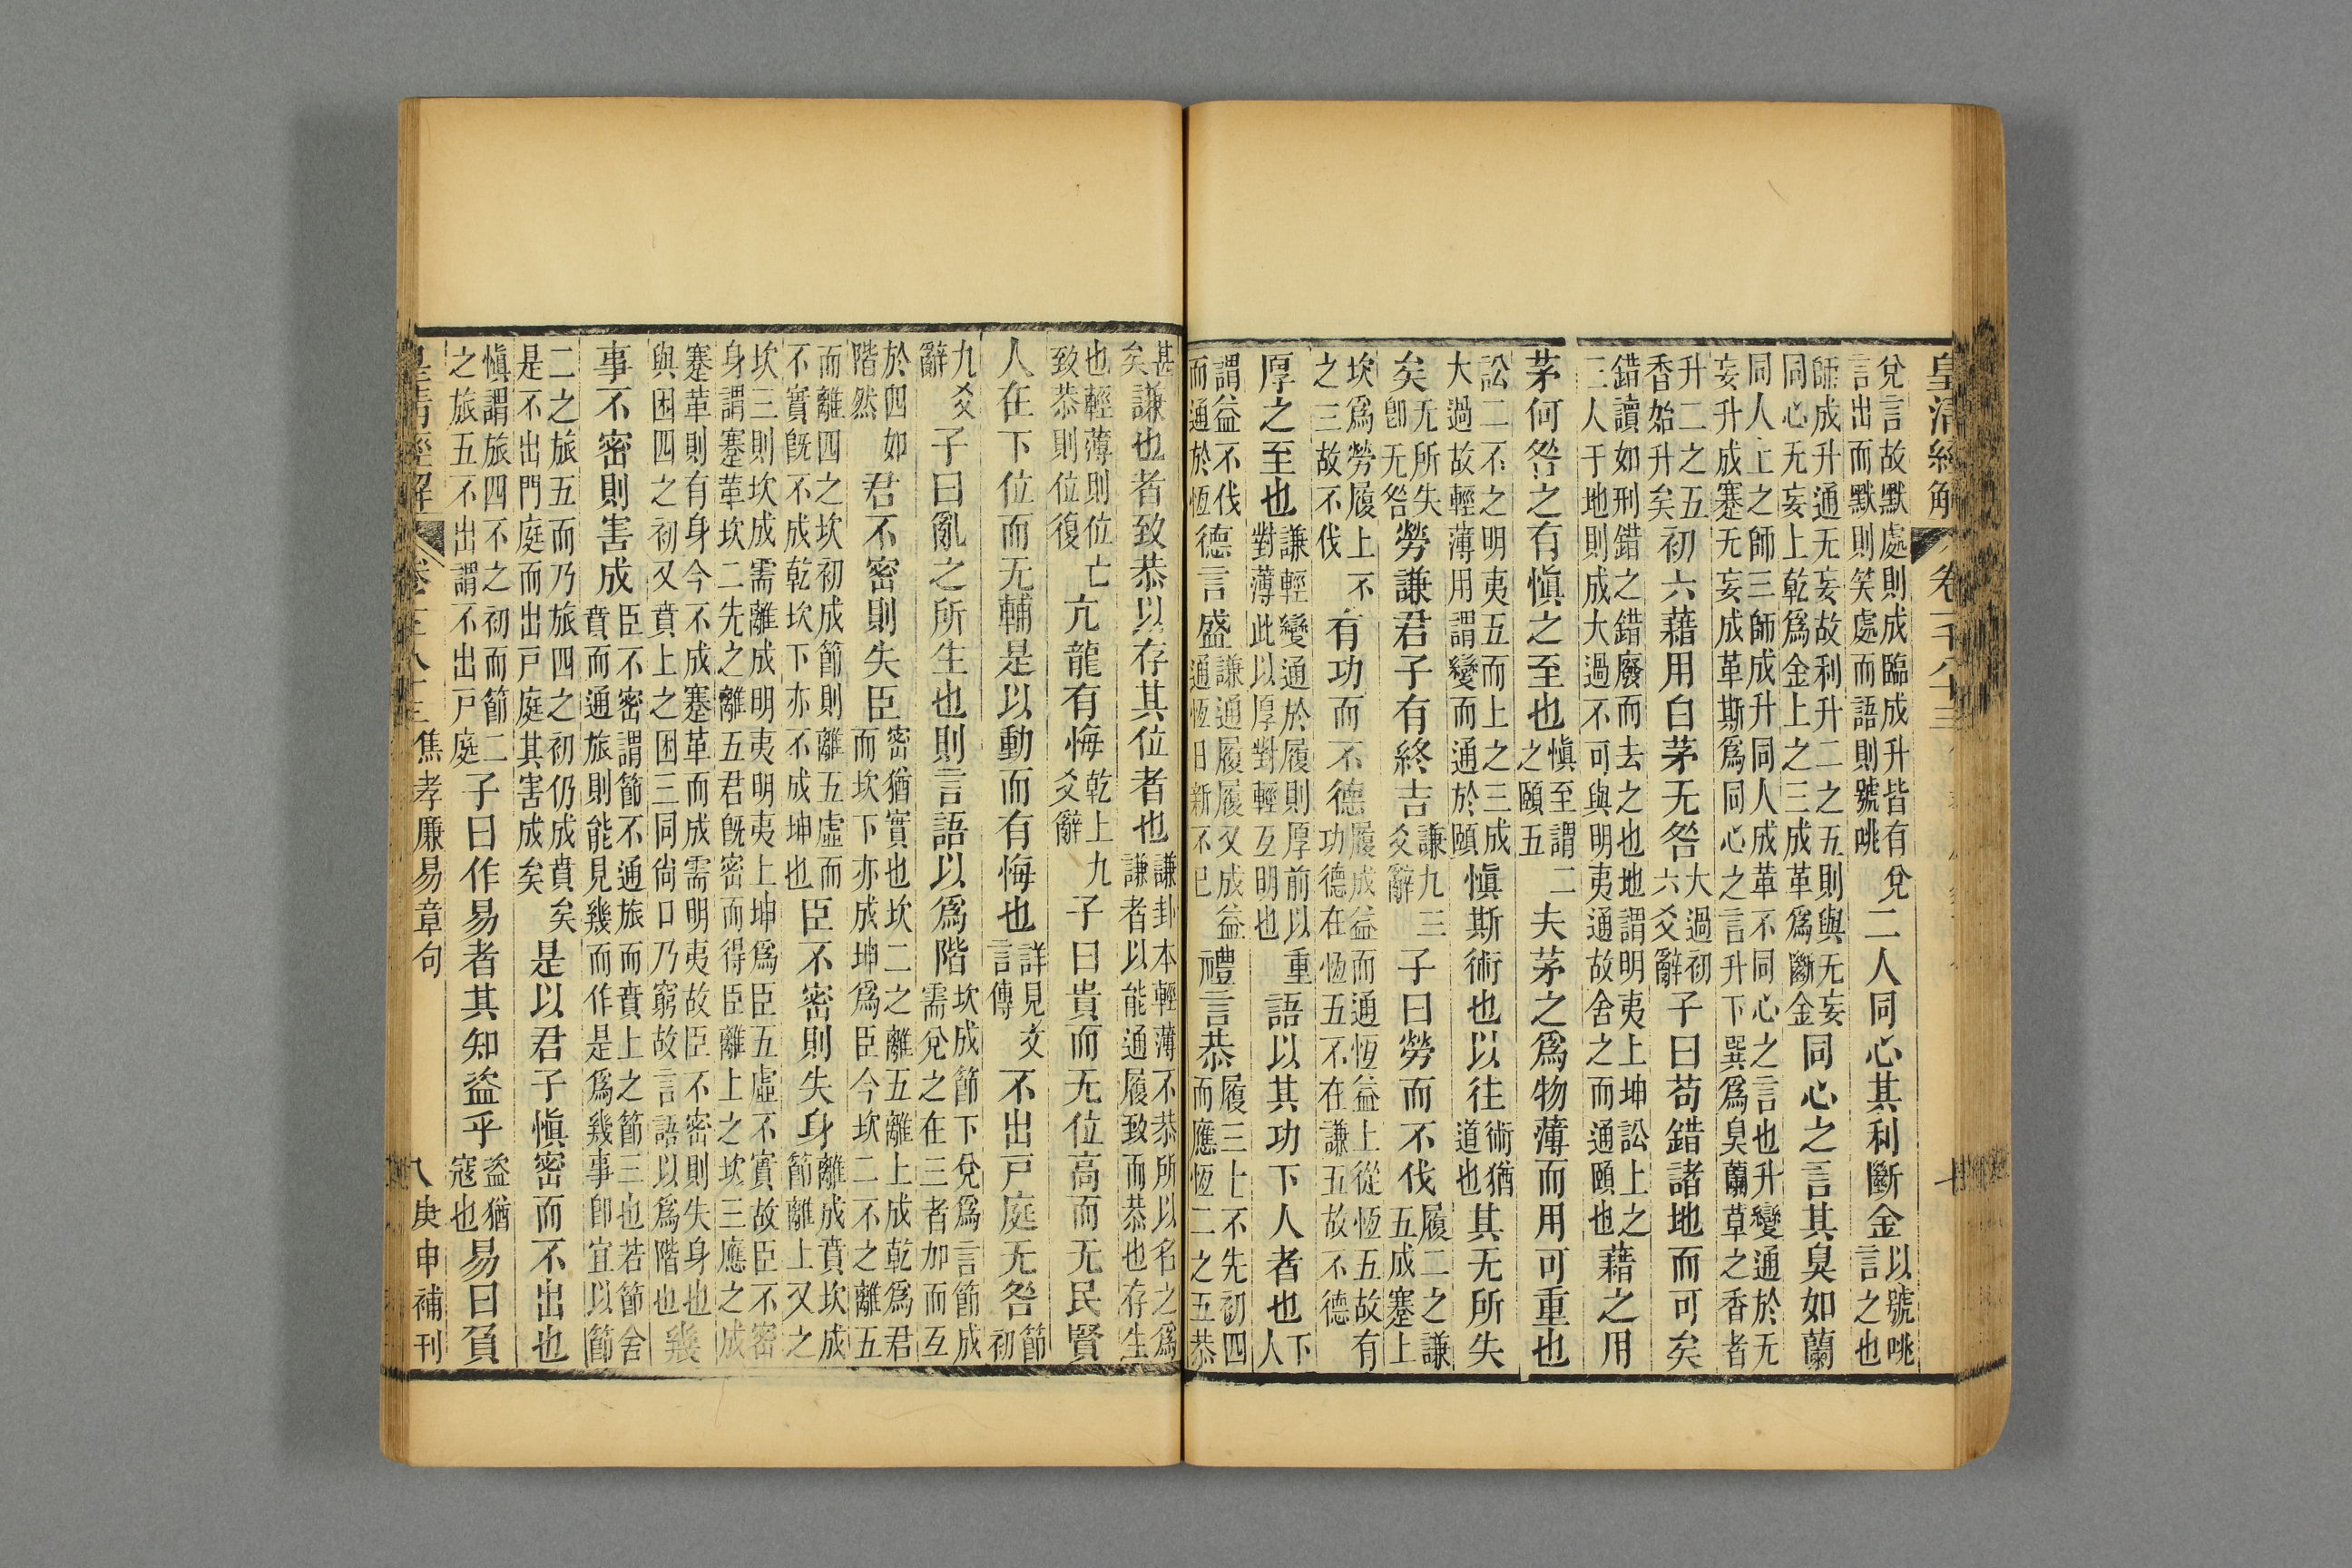 皇清經解 卷一千八十三
兌言故默處則成臨成升皆有兌言出而默則笑處而語則號咷二人同心其利斷金以號咷言之也
師成升通无妄故利升二之五則與无妄同心无妄上乾爲金上之三成革爲斷金同心之言其臭如蘭
同人上之師三師成升同人成革不同心之言也升變通於无妄升成蹇无妄成革斯爲同心之言升下巽爲臭蘭草之香者
升二之五香始升矣初六藉用白茅无咎大過初六爻辭子曰苟錯諸地而可矣
錯讀如刑錯之錯廢而去之也地謂明夷上坤訟上之三人于地則成大過不可與明夷通故舍之而通頤也藉之用
茅何咎之有愼之至也愼至謂二之頤五夫茅之爲物薄而用可重也
訟二不之明夷五而上之三成大過故輕薄用謂變而通於頤愼斯術也以往術猶道也其无所失
矣无所失卽无咎勞謙君子有終吉謙九三爻辭子曰勞而不伐履二之謙五成蹇上
坎爲勞履上不之三故不伐有功而不德履成益而通恆益上從恆五故有功德在恆五不在謙五故不德
厚之至也謙輕變通於履則厚前以重對薄此以厚對輕互明也語以其功下人者也下人
謂益不伐而通於恆德言盛謙通履履又成益通恆日新不已禮言恭履三上不先初四而應恆二之五恭
甚矣謙也者致恭以存其位者也謙卦本輕薄不恭所以名之爲謙者以能通履致而恭也存生
也輕薄則位亡致恭則位復亢龍有悔乾上九爻辭子曰貴而无位高而无民賢
人在下位而无輔是以動而有悔也詳見文言傳不出戸庭无咎節初
九爻辭子曰亂之所生也則言語以爲階坎成節下兌爲言節成需兌之在三者加而互
於四如階然君不密則失臣密猶實也坎二之離五離上成乾爲君而坎下亦成坤爲臣今坎二不之離五
而離四之坎初成節則離五虛而不實旣不成乾坎下亦不成坤也臣不密則失身離成賁坎成節離上又之
坎三則坎成需離成明夷明夷上坤爲臣五虛不實故臣不密身謂蹇蹇革坎二先之離五君旣密而得臣離上之坎三應之成
蹇革則有身今不成蹇革而成需明夷故臣不密則失身也與困四之初又賁上之困三同尙口乃窮故言語以爲階也幾
事不密則害成臣不密謂節不通旅而賁上之節三也若節舍賁而通旅則能見幾而作是爲幾事卽宜以節
二之旅五而乃旅四之初仍成賁矣是不出門庭而出戸庭其害成矣是以君子愼密而不出也
愼謂旅四不之初而節二之旅五不出謂不出戸庭子曰作易者其知盜乎盜猶寇也易曰負
皇清經解 卷 八十三 焦孝廉易章句 庚申補刊